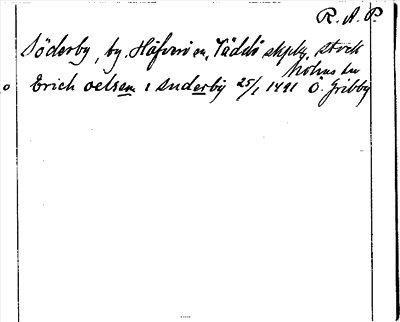 R. A. P
Söderby, by, Häfverö sn, Väddö skplg, Stock
holms län
o Erich oelsson i suderby 25/1 1491 Ö. Gribby